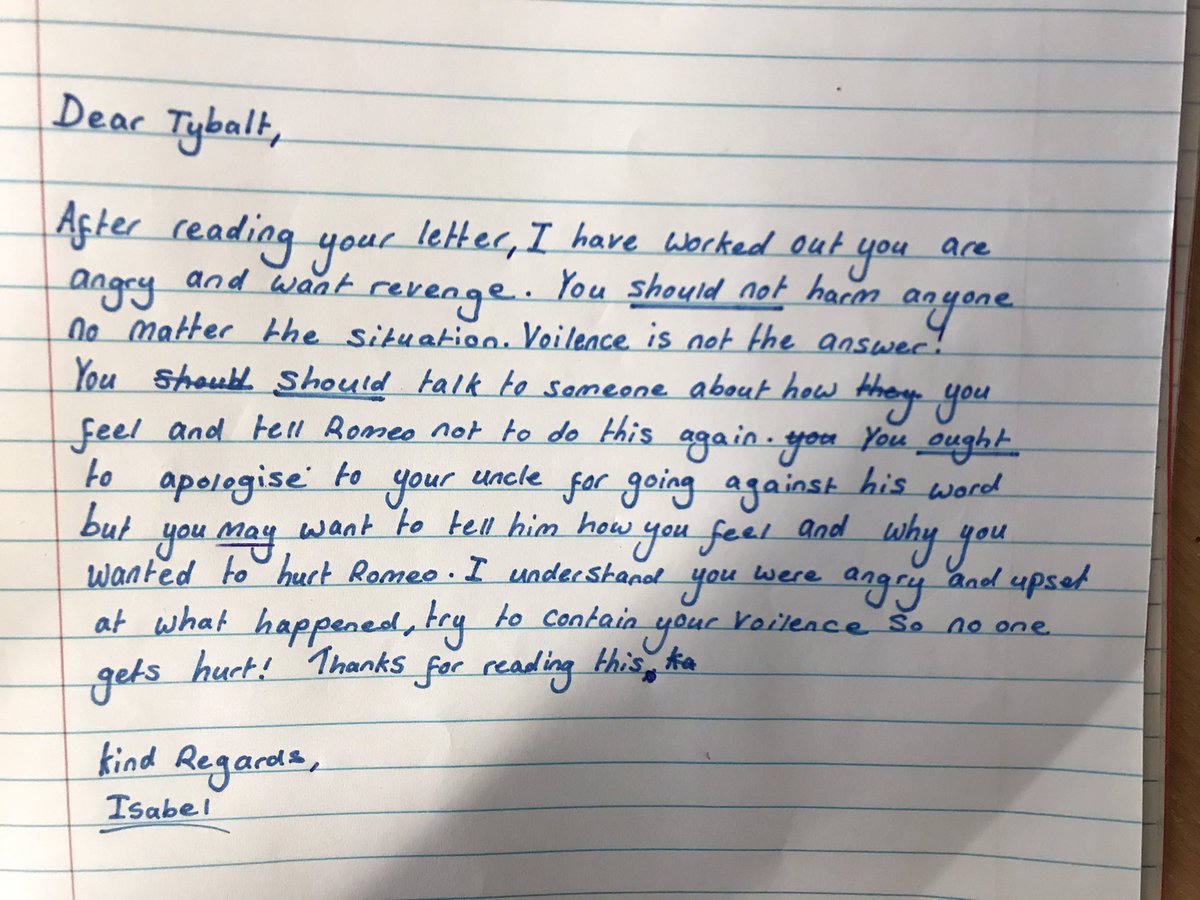 Dear Tybalt,
After reading your letter, I have worked out you are
angry and want revenge. You should not harm anyone
no matter the situation. Voilence is not the answer!
You should should talk to someone about how they you
feel and tell Romeo not to do this again. you You ought
to apologise to your uncle for going against his word
but you may want to tell him how you feel and why you
wanted to hurt Romeo. I understand you were angry and upset
at what happened, try to contain your voilence so no one
gets hurt! Thanks for reading this. ka
kind Regards,
Isabel